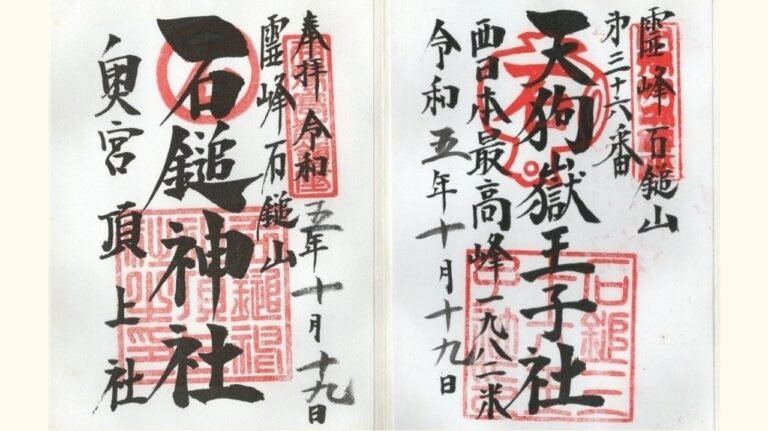 霊峰石鎚山
才三十六番
天狗嶽王子社
西日本最高峰一九八二米
令和五年十月十九日
奉拝 令和五年十月十九日
霊峰石鎚山
石鎚神社
奥宮頂上社